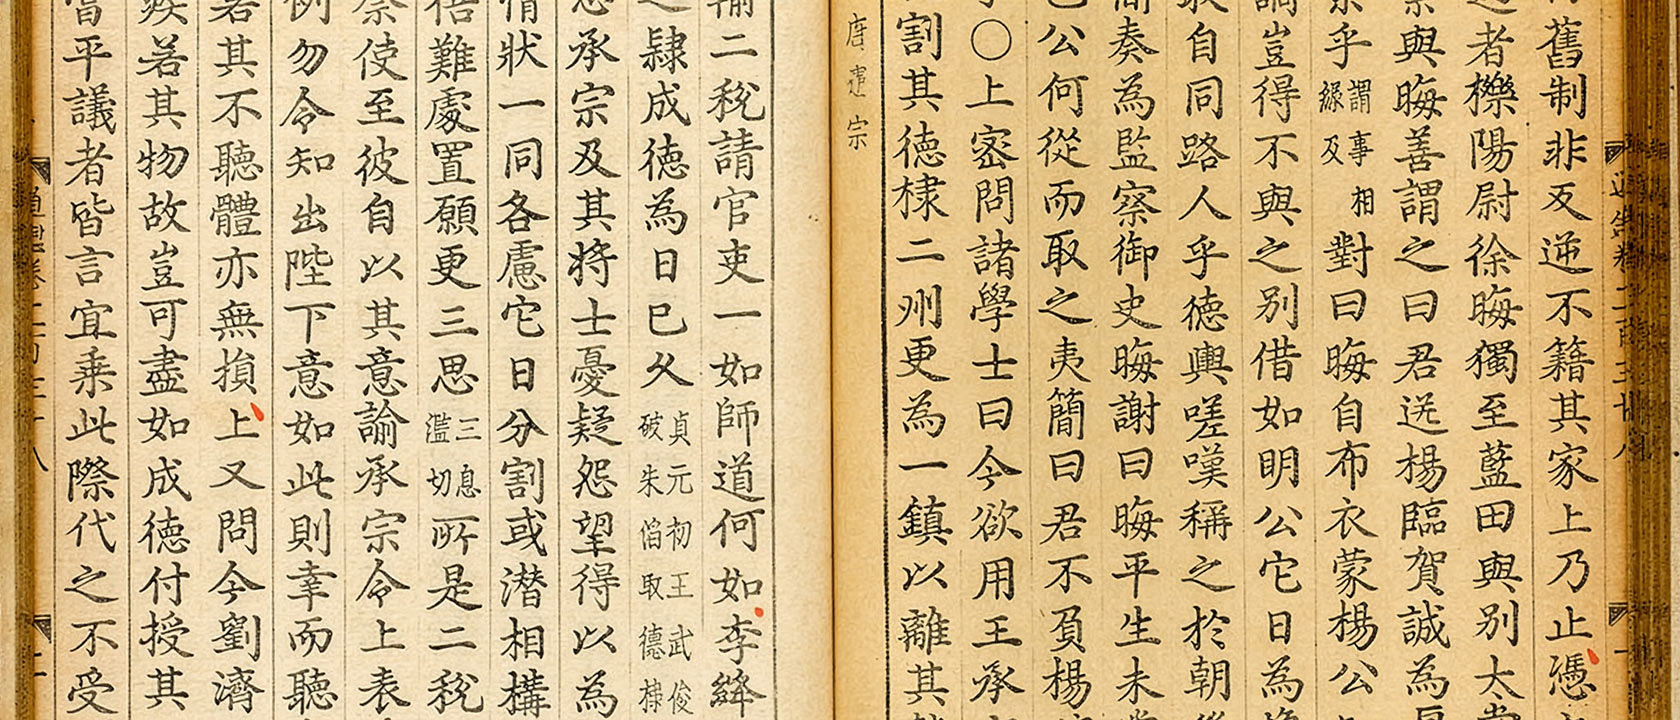 通鑑卷二百三十八
舊制非反逆不籍其家上乃止憑
者櫟陽尉徐晦獨至藍田與别太常
與晦善謂之曰君送楊臨賀誠為厚
乎謂事相緣及對曰晦自布衣蒙楊公
謫豈得不與之别借如明公它日為
敢自同路人乎德輿嗟嘆稱之於朝後
簡奏為監察御史晦謝曰晦平生未嘗
公何從而取之夷簡曰君不負楊
○上密問諸學士曰今欲用王承
割其德棣二州更為一鎮以離其
唐憲宗
輸二稅請官吏一如師道何如李絳
隸成德為日已久貞元初王武俊破朱滔取德棣
承宗及其將士憂疑怨望得以為
情狀一同各慮它日分割或潛相構
悟難處置願更三思三息濫切所是二稅
祭使至彼自以其意諭承宗令上表
例勿令知出陛下意如此則幸而聽
若其不聽體亦無損上又問今劉濟
疾若其物故豈可盡如成德付授其
當平議者皆言宜乘此際代之不受
通鑑卷二百三十八